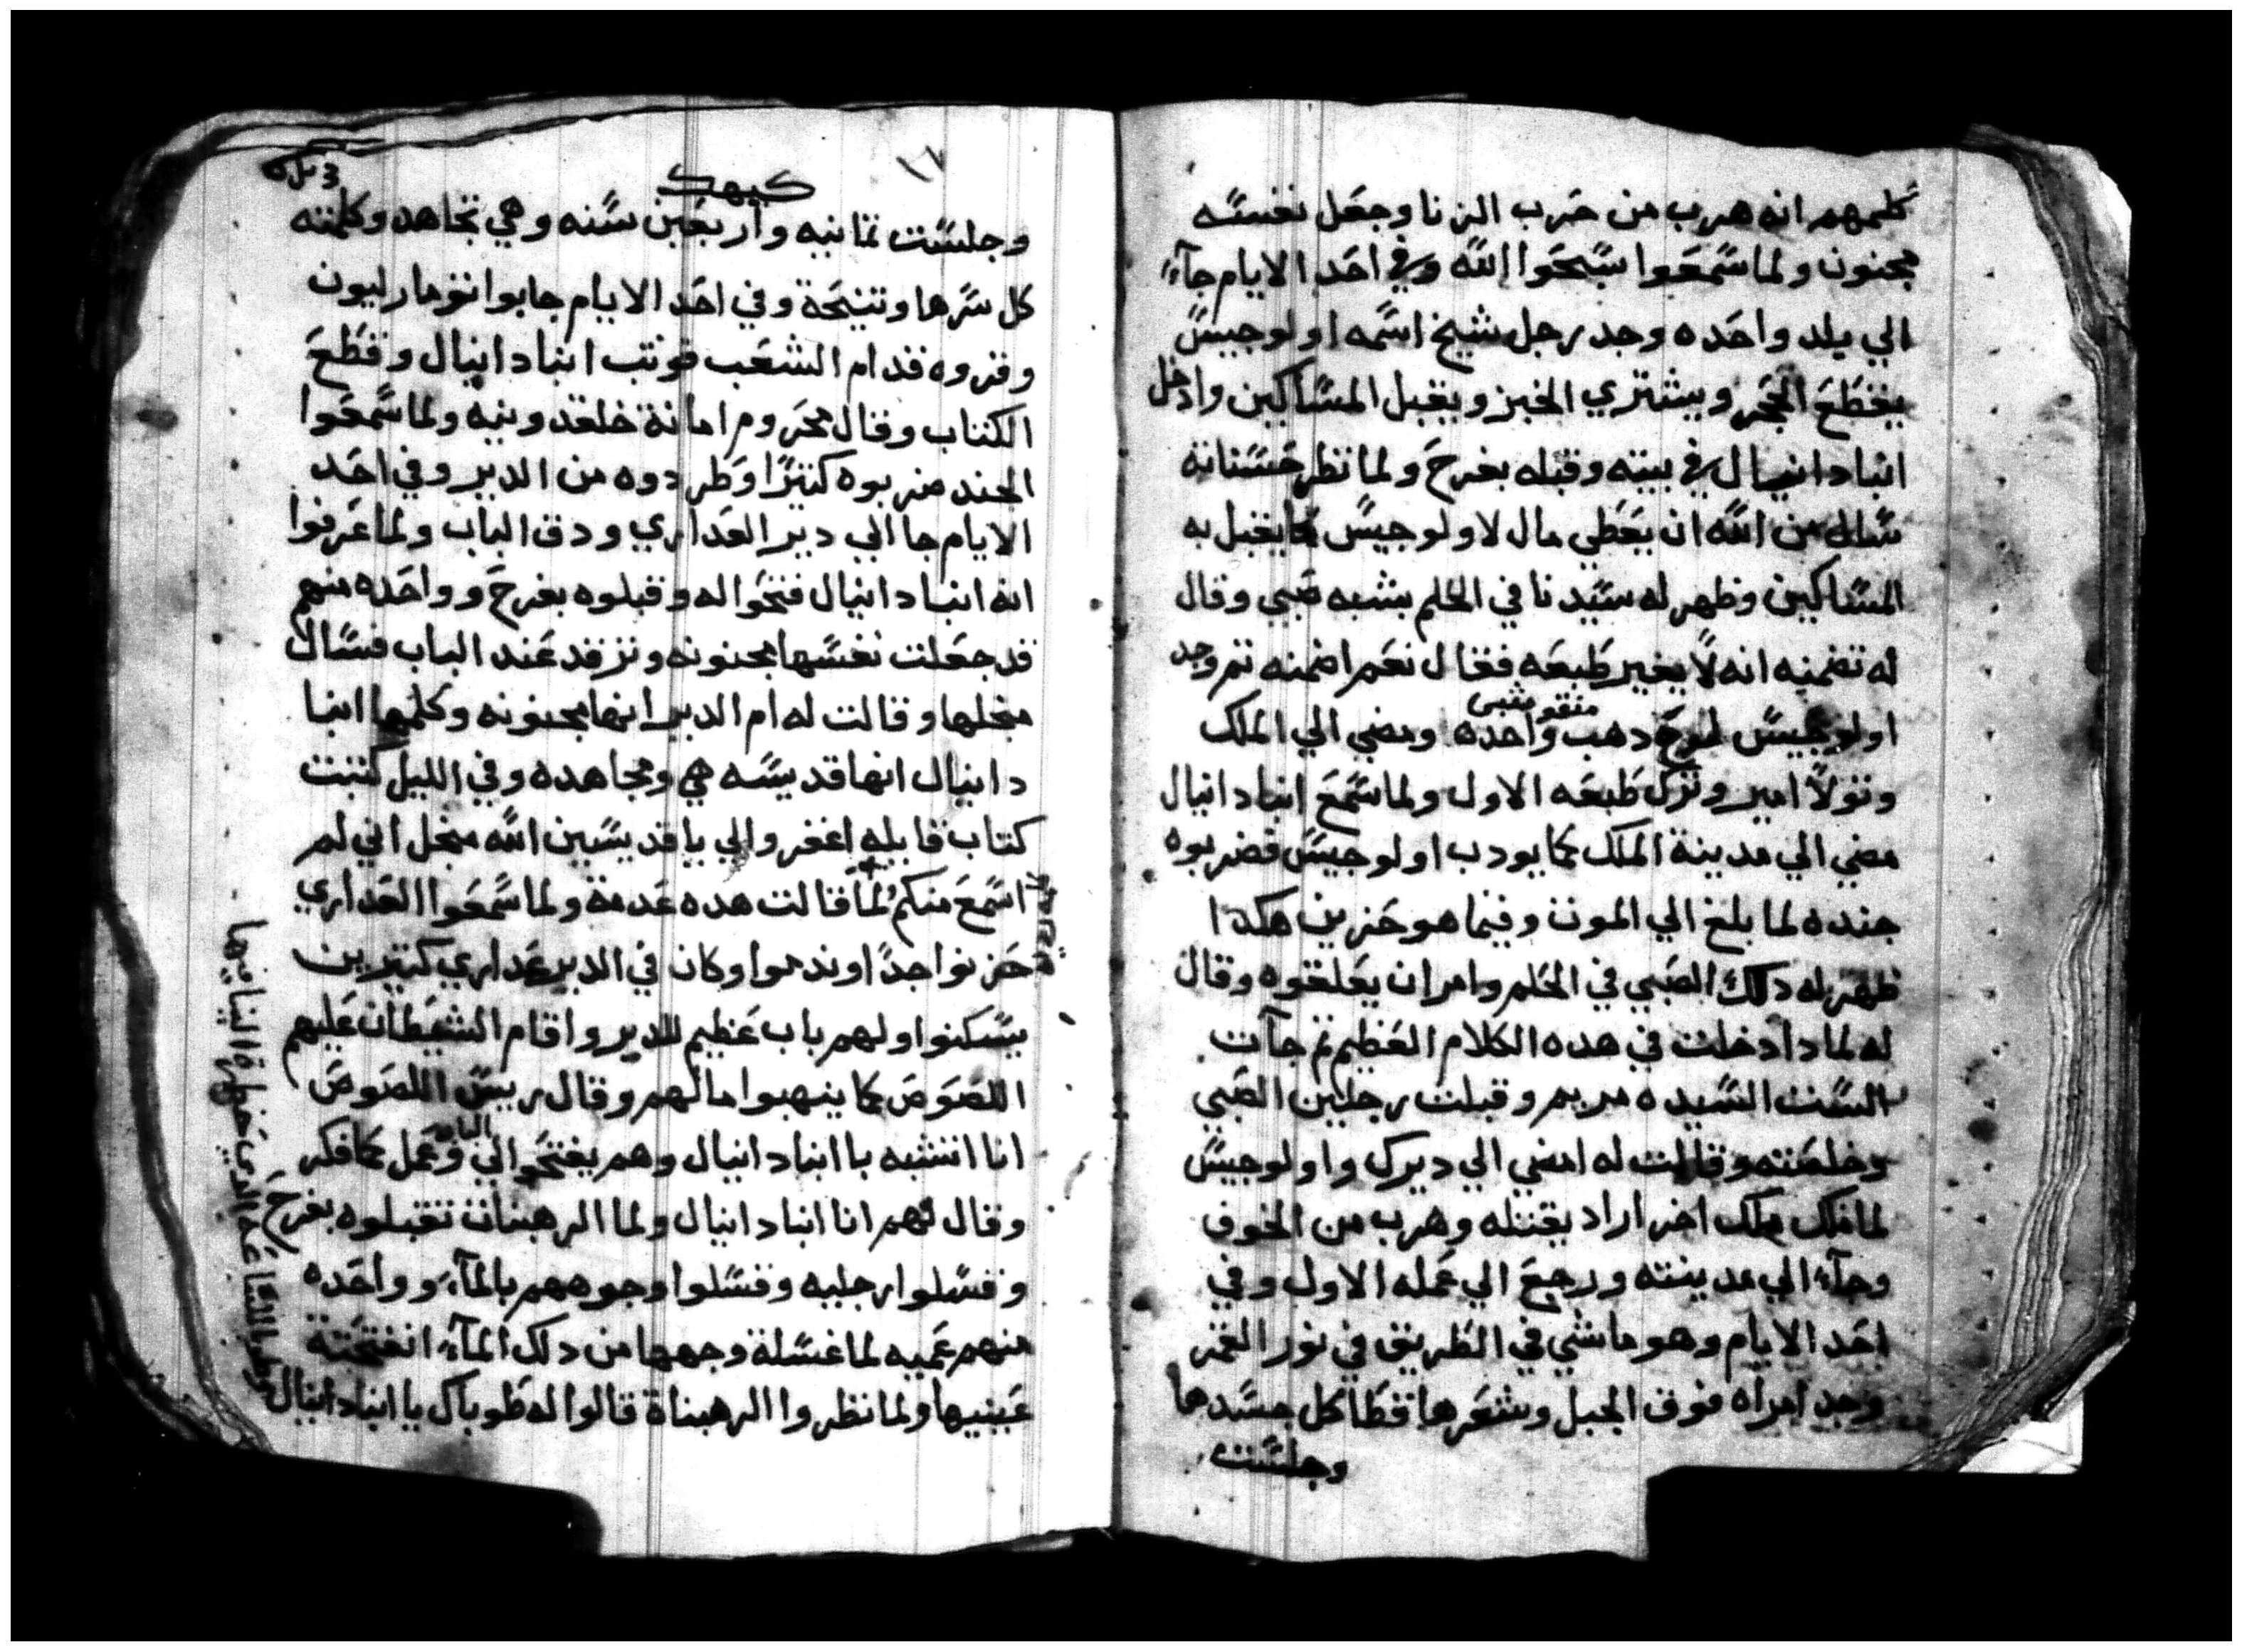 كلمهم انه هرب من حرب الزنا وجعل نفسه
مجنون ولما سمعوا سبحوا الله وفي احد الايام جآء
الي بلد واحده وجد رجل شيخ اسمه اولوجيس
يقطع الحجر ويشتري الخبز ويقبل المساكين وادخل
انبا دانيال في بيته وقبله بفرح ولما نظر حسناته
سال من الله ان يعطي مال لاولوجيس كما يقبل به
المساكين وظهر له سيدنا في الحلم بشبه صبي وقال
له تضمنه انه لا يغير طبعه فقال نعم اضمنه ثم وجد
اولوجيس لموج دهب واحده ومضي الي الملك
وتولا امير وترك طبعه الاول ولما سمع انبا دانيال
مضي الي مدينة الملك كما يودب اولوجيس فضربوه
جنده لما بلغ الي الموت وفيما هو حزين هكدا
ظهر له دلك الصبي في الحلم وامر ان يعلقوه وقال
له لمادا دخلت في هده الكلام العظيم ثم جآت
الست السيده مريم وقبلت رجلين الصبي
وخلصته وقالت له امضي الي ديرك واولوجيس
لما ملك ملك اخر اراد يقتله وهرب من الخوف
وجآء الي مدينته ورجع الي عمله الاول وفي
احد الايام وهو ماشي في الطريق في نور القمر
وجد امراه فوق الجبل وشعرها قطا كل جسدها
وجلست
١٧
كيهك
وجلست تمانيه واربعين سنه وهي تجاهد وكلمته
كل سرها وتنيحة وفي احد الايام جابوا تومار ليون
وقروه قدام الشعب فوتب انبا دانيال وقطع
الكتاب وقال محروم امانة خلقدونيه ولما سمعوا
الجند ضربوه كتيرا وطردوه من الدير وفي احد
الايام جا الي دير العداري ودق الباب ولما عرفوا
انه انبا دانيال فتحوا له وقبلوه بفرح وواحده منهم
قد جعلت نفسها مجنونه وترقد عند الباب فسال
منجلها وقالت له ام الدير انها مجنونه وكلمها انبا
دانيال انها قديسه هي ومجاهده وفي الليل كتبت
كتاب قايله اغفروا لي يا قديسين الله منجل اني لم
اسمع منكم لما قالت هده عدمة ولما سمعوا العداري
حزنوا جدا وندموا وكان في الدير عداري كتيرين
يسكنوا ولهم باب عظيم للدير واقام الشيطان عليهم
اللصوص كما ينهبوا مالهم وقال ريس اللصوص
انا اتشبه با انبا دانيال وهم يفتحوا لي الباب وعمل كما فكر
وقال لهم انا انبا دانيال ولما الرهبنات تقبلوه بفرح
وغسلوا رجليه وغسلوا وجوههم بالمآء وواحده
منهم عميه لما غسلة وجهها من دلك المآء انفتحتة
عينيها ولما نظروا الرهبناة قالوا له طوباك يا انبا دانيال